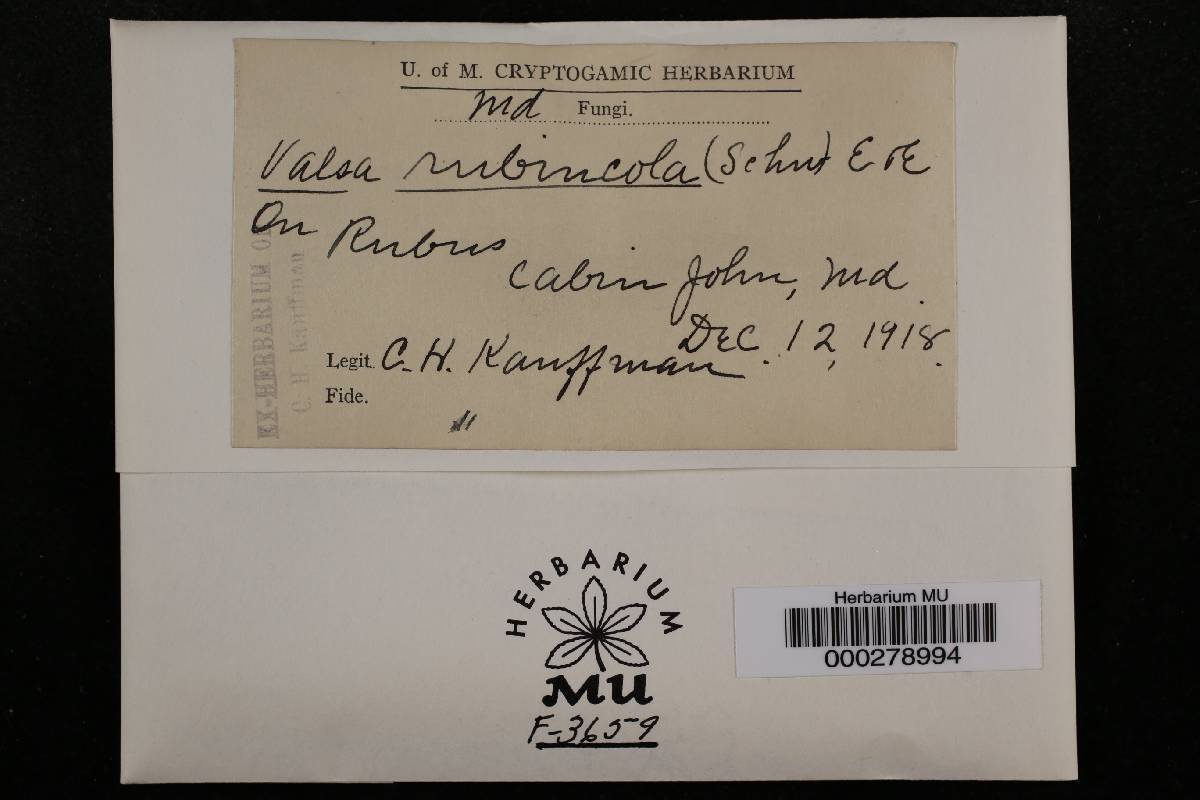 U. of M. CRYPTOGAMIC HERBARIUM
Md Fungi.
Valsa rubincola (Schw) E & E
On Rubus
Cabin John, Md.
Dec. 12, 1918.
Legit. C. H. Kauffman
Fide.
EX-HERBARIUM OF
C. H. Kauffman
HERBARIUM
MU
F-3659
Herbarium MU
000278994